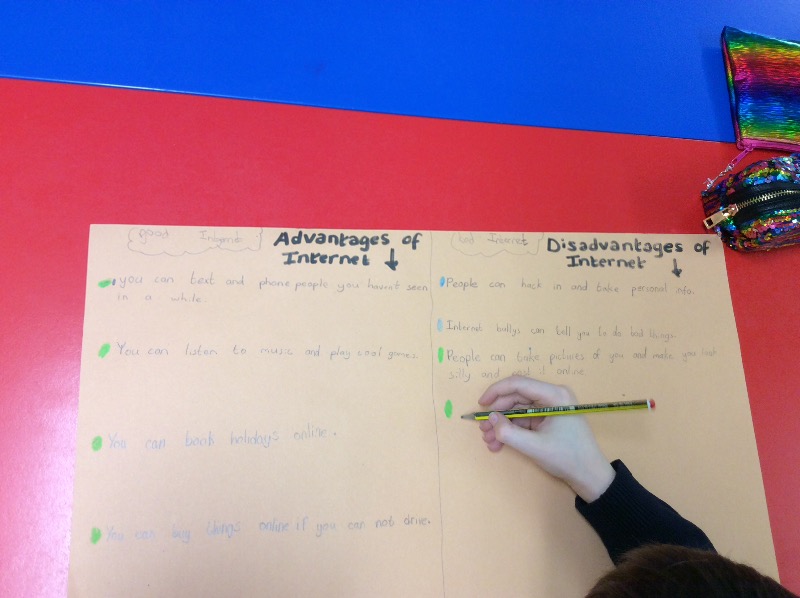 good Internet
Advantages of
Internet ↓
you can text and phone people you havn't seen
in a while.
You can listen to music and play cool games.
You can book holidays online.
You can buy things online if you can not drive.
bad Internet
Disadvantages of
Internet ↓
People can hack in and take personal info.
Internet bullys can tell you to do bad things.
People can take pictures of you and make you look
silly and post it online